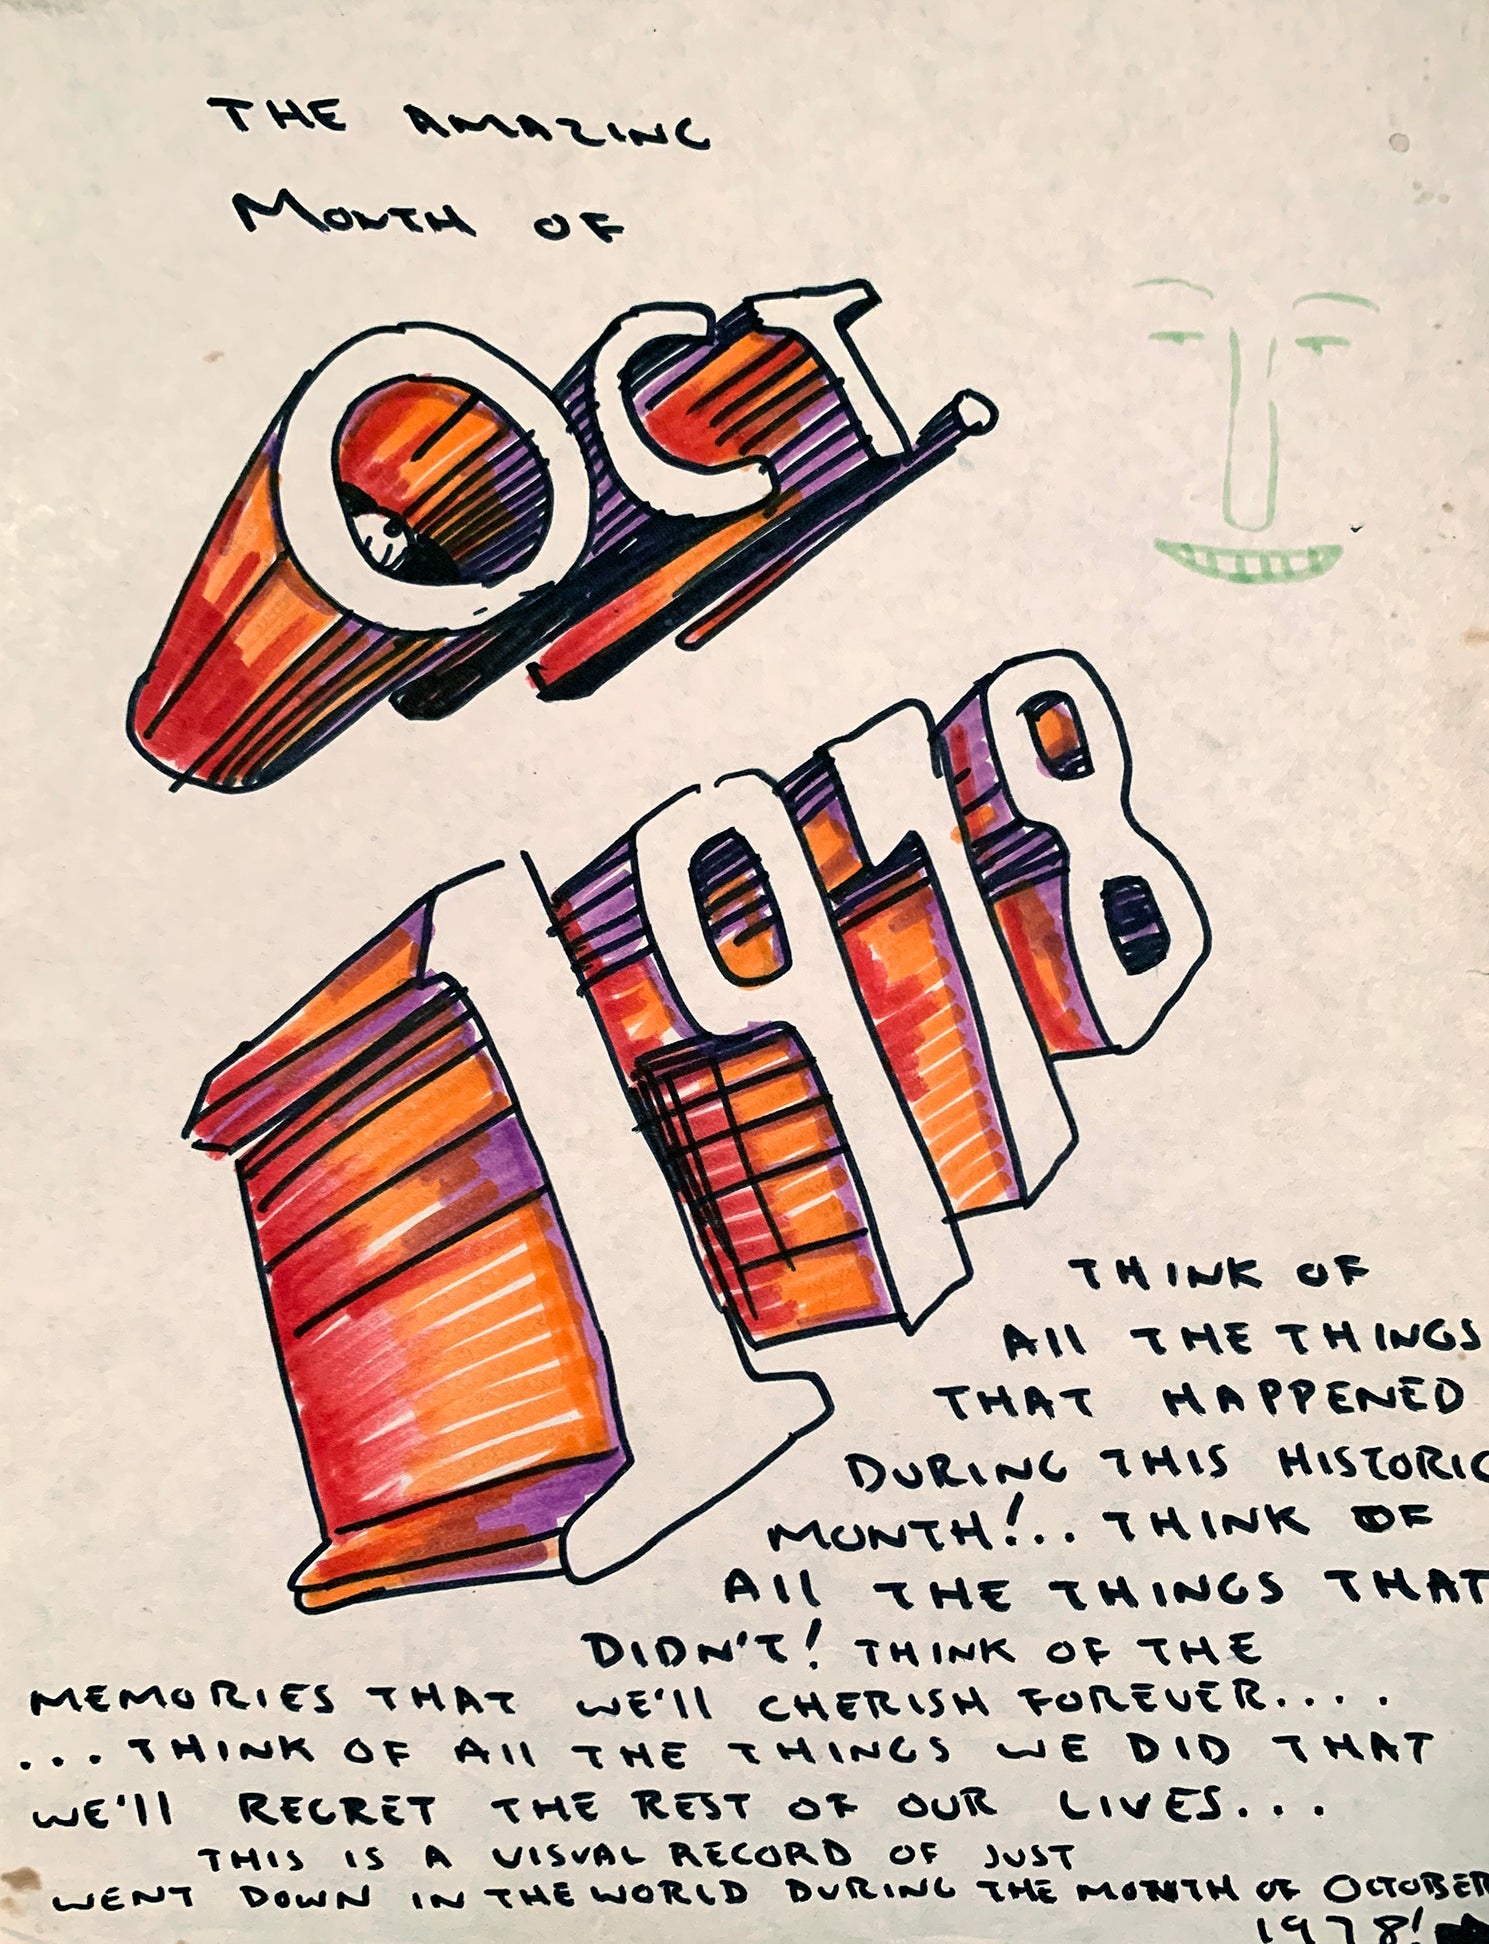 THE AMAZING
MONTH OF
OCT.
1978
THINK OF
All THE THINGS
THAT HAPPENED
DURING THIS HISTORIC
MONTH!.. THINK OF
All THE THINGS THAT
DIDN'T! THINK OF THE
MEMORIES THAT WE'll CHERISH FOREVER....
...THINK OF All THE THINGS WE DID THAT
WE'll REGRET THE REST OF OUR LIVES...
THIS IS A VISUAL RECORD OF JUST
WENT DOWN IN THE WORLD DURING THE MONTH OF OCTOBER
1978!